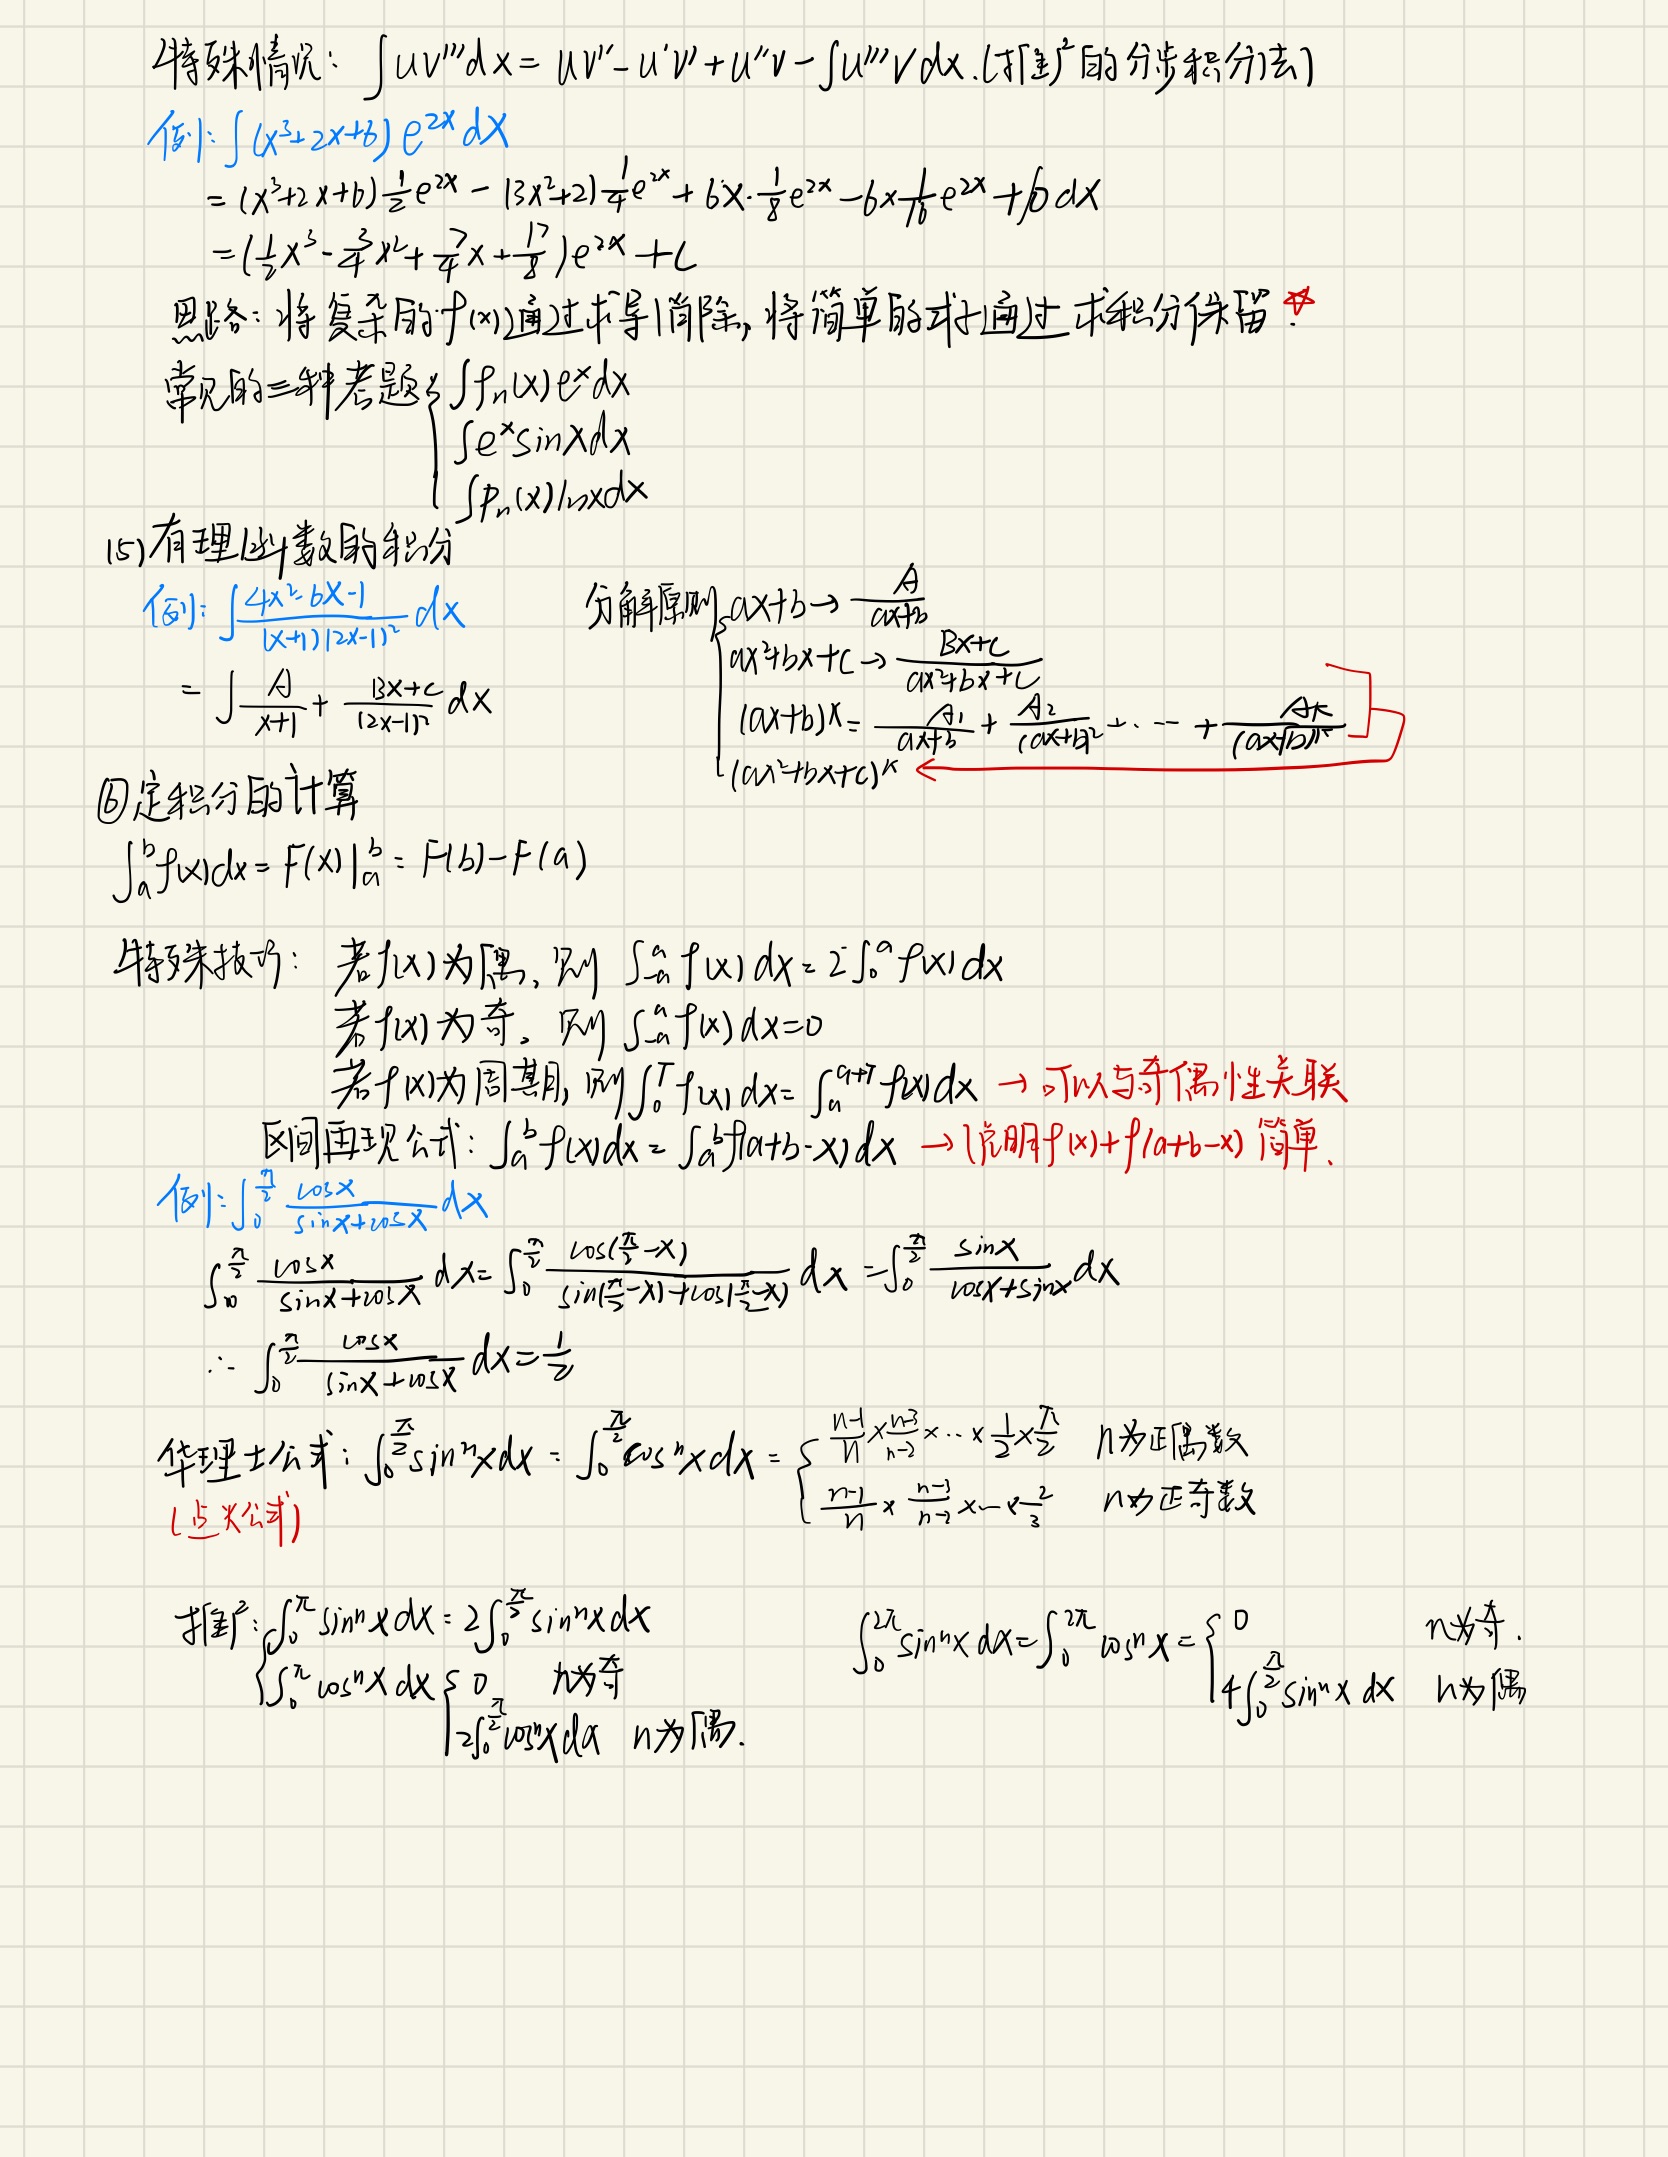 特殊情况: ∫uv'''dx = uv''-u'v'+u''v-∫u'''vdx.(推广的分步积分法)
例: ∫(x³+2x+6)e^{2x}dx
= (x³+2x+6)½e^{2x} - (3x²+2)¼e^{2x} + 6x·⅛e^{2x} - 6×1/16 e^{2x} + ∫0dx
= (½x³ - ¾x² + 7/4x + 17/8)e^{2x} + C
思路: 将复杂的f(x)通过求导消除, 将简单的式子通过求积分保留. ☆
常见的三种考题 { ∫Pn(x)e^x dx
∫e^x sinx dx
∫Pn(x)lnxdx
(5) 有理函数的积分
例: ∫ (4x²-6x-1)/((x+1)(2x-1)²) dx
= ∫ A/(x+1) + (Bx+C)/(2x-1)² dx
分解原则 { ax+b → A/(ax+b)
ax²+bx+c → (Bx+C)/(ax²+bx+c)
(ax+b)^k = A₁/(ax+b) + A₂/(ax+b)² + ··· + A_k/(ax+b)^k
(ax²+bx+c)^k ←
⑥定积分的计算
∫_a^b f(x)dx = F(x)|_a^b = F(b)-F(a)
特殊技巧: 若f(x)为偶, 则 ∫_{-a}^a f(x)dx = 2∫_0^a f(x)dx
若f(x)为奇, 则 ∫_{-a}^a f(x)dx=0
若f(x)为周期, 则∫_0^T f(x)dx = ∫_a^{a+T} f(x)dx → 可以与奇偶性关联
区间再现公式: ∫_a^b f(x)dx = ∫_a^b f(a+b-x)dx → (说明f(x)+f(a+b-x) 简单.
例: ∫_0^{π/2} cosx/(sinx+cosx) dx
∫_0^{π/2} cosx/(sinx+cosx) dx = ∫_0^{π/2} cos(π/2-x)/(sin(π/2-x)+cos(π/2-x)) dx = ∫_0^{π/2} sinx/(cosx+sinx) dx
∴ ∫_0^{π/2} cosx/(sinx+cosx) dx = ½
华理士公式: ∫_0^{π/2} sin^n x dx = ∫_0^{π/2} cos^n x dx = { (n-1)/n × (n-3)/(n-2) × ·· × ½ × π/2 n为正偶数
(n-1)/n × (n-3)/(n-2) × ··· × 2/3 n为正奇数
(点火公式)
推广: { ∫_0^π sin^n x dx = 2∫_0^{π/2} sin^n x dx
∫_0^π cos^n x dx { 0 n为奇
2∫_0^{π/2} cos^n x dx n为偶.
∫_0^{2π} sin^n x dx = ∫_0^{2π} cos^n x = { 0 n为奇.
4∫_0^{π/2} sin^n x dx n为偶